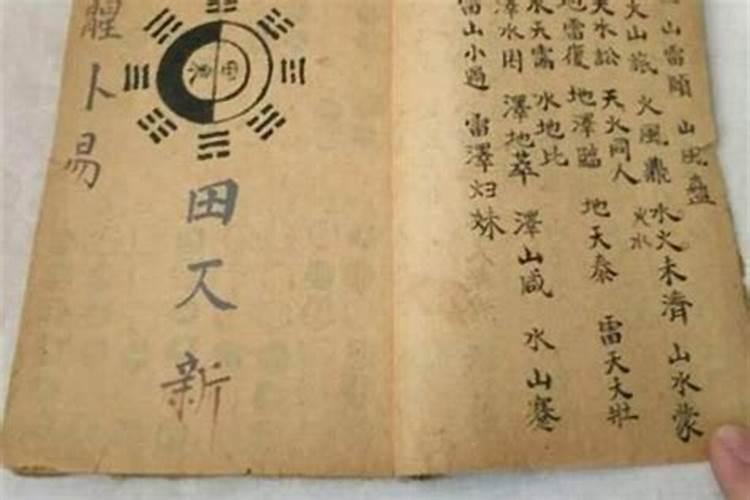 山雷頤 山風蠱
火山旅 火風鼎 水火 火水 未濟 山水蒙
天水訟 天火同人
地雷復 地澤臨 地天泰 雷天大壯
水天需 水地比
澤水困 澤地萃 澤山咸 水山蹇
雷山小過 雷澤归妹
田 新
卜易